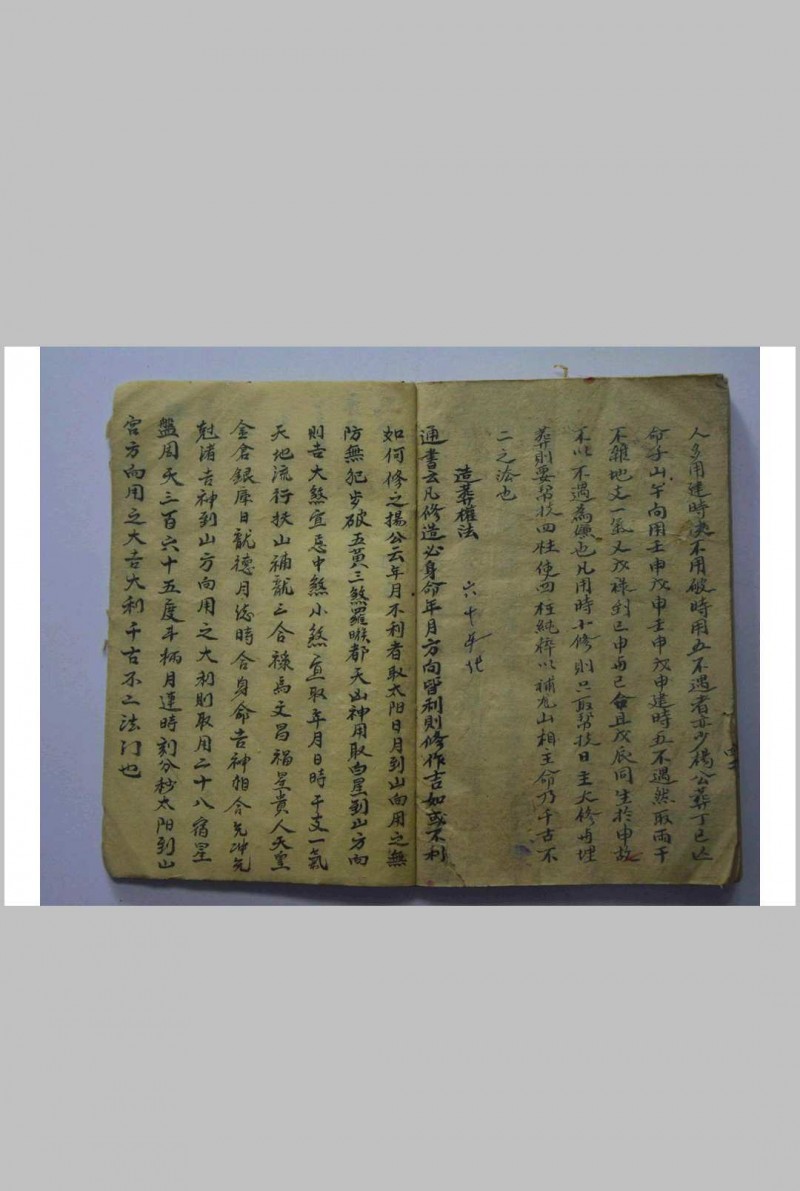 人多用建時决不用破時用五不遇者亦少楊公葬丁巳亡
命子山午向用壬申戊申壬申戊申建時五不遇然取兩干
不雜地支一氣又戊祿到巳申与巳合且戊辰同生於申故
不以不遇為嫌也凡用時小修則只取幫扶日主大修与埋
葬則要幫扶四柱使四柱純粹以補龙山相主命乃千古不
二之法也
造葬權法
六十年花
通書云凡修造必身命年月方向皆利則修作吉如或不利
如何修之楊公云年月不利者取太阳日月到山向用之無
防無犯步破五黃三煞羅㬋都天凶神用取向星到山方向
則吉大煞宜忌中煞小煞宜取年月日時干支一氣
天地流行扶山補龍三合祿馬文昌福星貴人天皇
金倉銀庫日龍德月德時合身命吉神相合无冲无
尅诸吉神到山方向用之大利則取用二十八宿星
盤周天三百六十五度斗柄月運時刻分秒太阳到山
宫方向用之大吉大利千古不二法门也